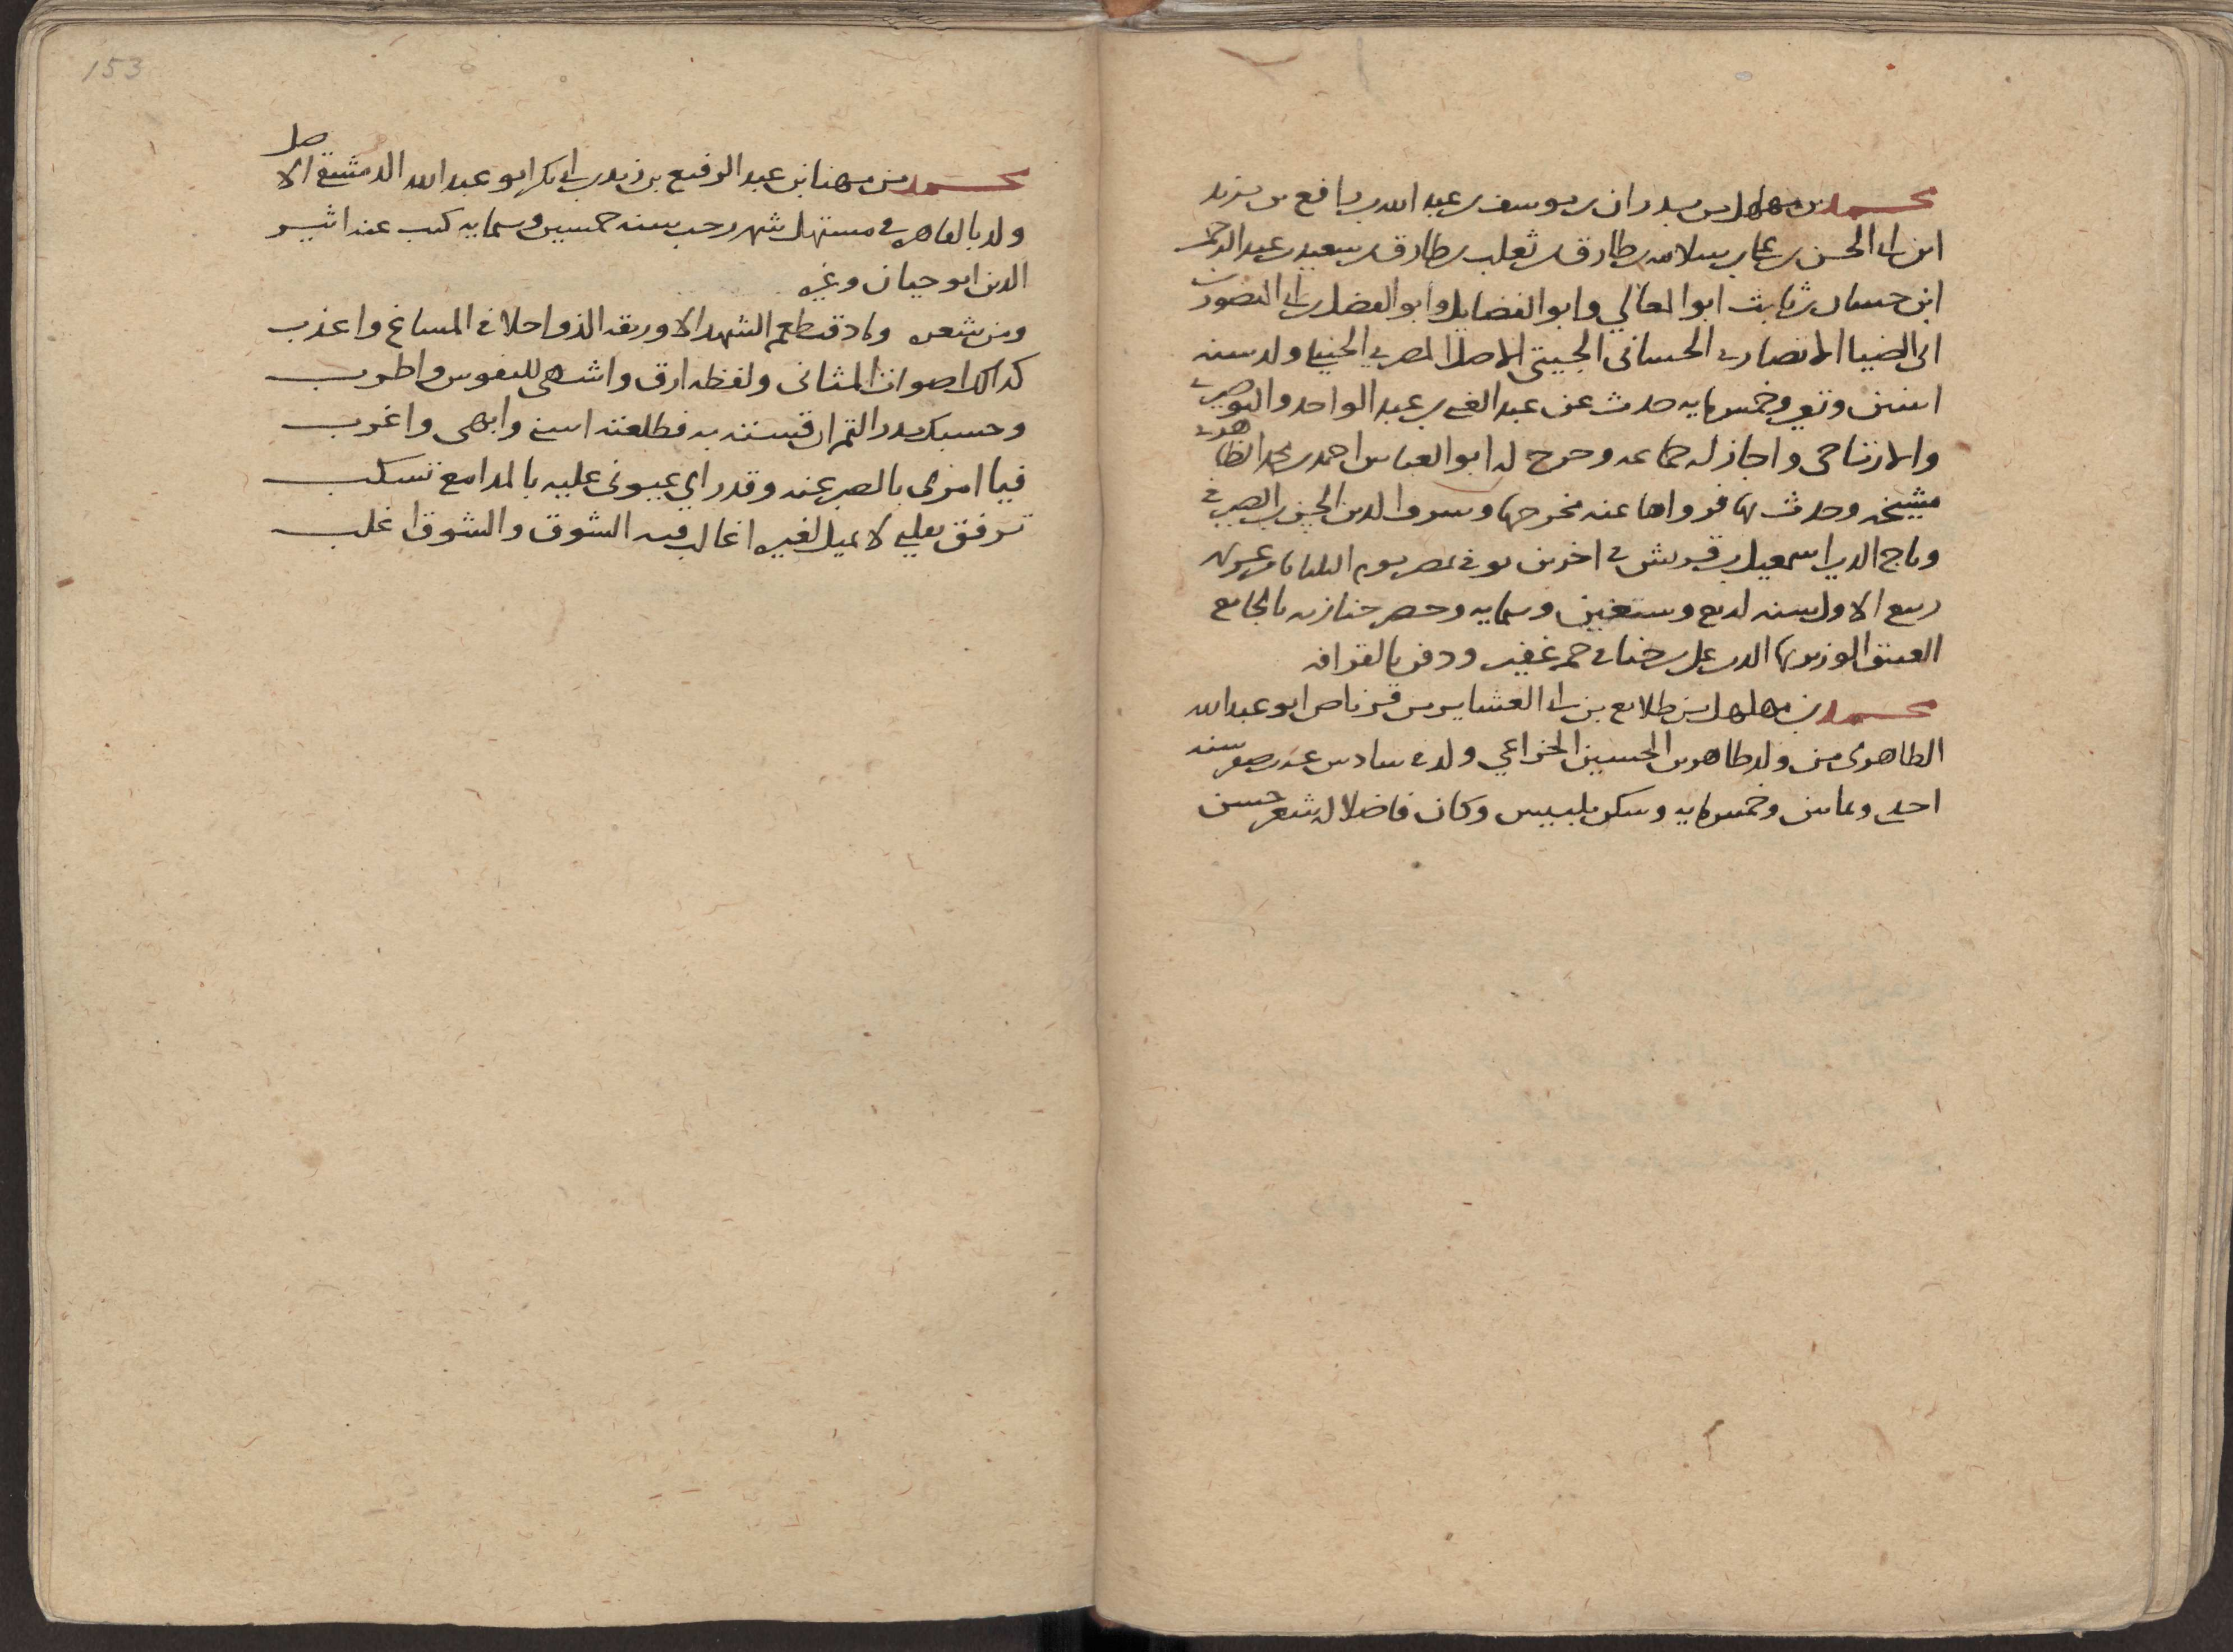 محمد بن مهلهل بن بدران بن يوسف بن عبد الله بن رافع بن يزيد
ابن ابى الحسن بن عمار بن سلامه بن طارق بن ثعلب بن طارق بن سعيد بن عبد الرحمن
ابن حسان بن ثابت ابو المعالي وابو الفضايل وابو الفضل بن ابى المنصور بن
ابى الضيا الانصارى الحسانى الجيتى الاصل المصرى الحنبلى ولد سنه
اثنين وتسعين وخمسمايه حدث عن عبد الغنى بن عبد الواحد والبوصيرى
والارتاحى واجاز له جماعه وخرج له ابو العباس احمد بن محمد الظاهرى
مشيخه وحدث بها فرواها عنه مخرجها وشرف الدين الحسن بن الصيرفى
وتاج الدين اسمعيل بن قريش فى اخرين توفى بمصر يوم الثلثا ثامن عشرين
ربيع الاول سنه اربع وسبعين وستمايه وحضر جنازته بالجامع
العتيق الوزير بها الدين على بن حنا فى جمع غفير ودفن بالقرافه
محمد بن مهلهل بن طلايع بن ابى العشاير بن قرناص ابو عبد الله
الطاهرى من ولد طاهر بن الحسين الخزاعي ولد فى سادس عشر صفر سنه
احدى وثمانين وخمسمايه وسكن بلبيس وكان فاضلا له شعر حسن
153
محمد بن مهنا بن عبد الرفيع بن زيد بن ابى بكر ابو عبد الله الدمشقى الاصل
ولد بالقاهره فى مستهل شهر رجب سنه خمسين وستمايه كتب عنه اثير
الدين ابو حيان وغيره
ومن شعره وما ذقت طعم الشهد الا وريقه الذ واحلا فى المساغ واعذب
كذاك اصوات المثانى ولفظه ارق واشهى للنفوس واطرب
وحسبك بدر التم ان قسته به فطلعته اسنى وابهى واغرب
فيا امرى بالصبر عنه وقد راي عيونى عليه بالمدامع تسكب
ترفق بقلبى لا يميل لغيره اغالب فيه الشوق والشوق اغلب